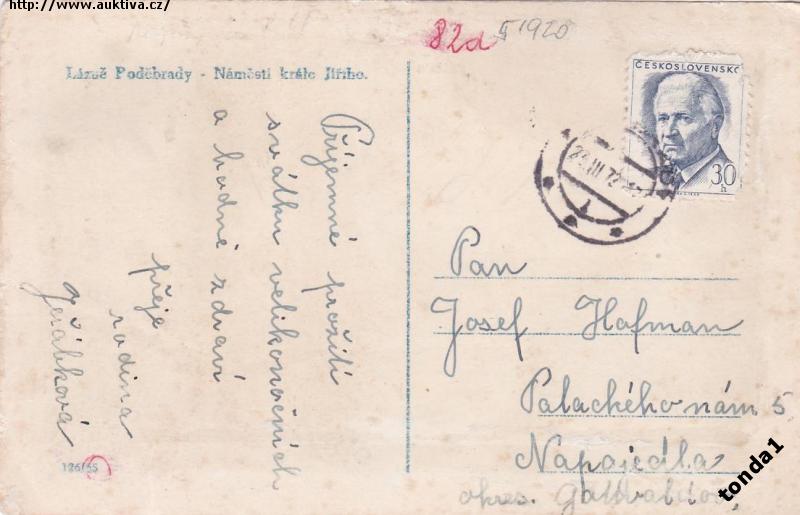 http://www.auktiva.cz/
82a 51920
Lázně Poděbrady - Náměstí krále Jiřího.
ČESKOSLOVENSKO
30
h
22.III.72
Příjemné prožití
svátků velikonočních
a hodně zdraví
přeje
rodina
Jeřábková
Pan
Josef Hofman
Palackého nám 5
Napajedla
okres. Gottwaldov
126/55
tonda1